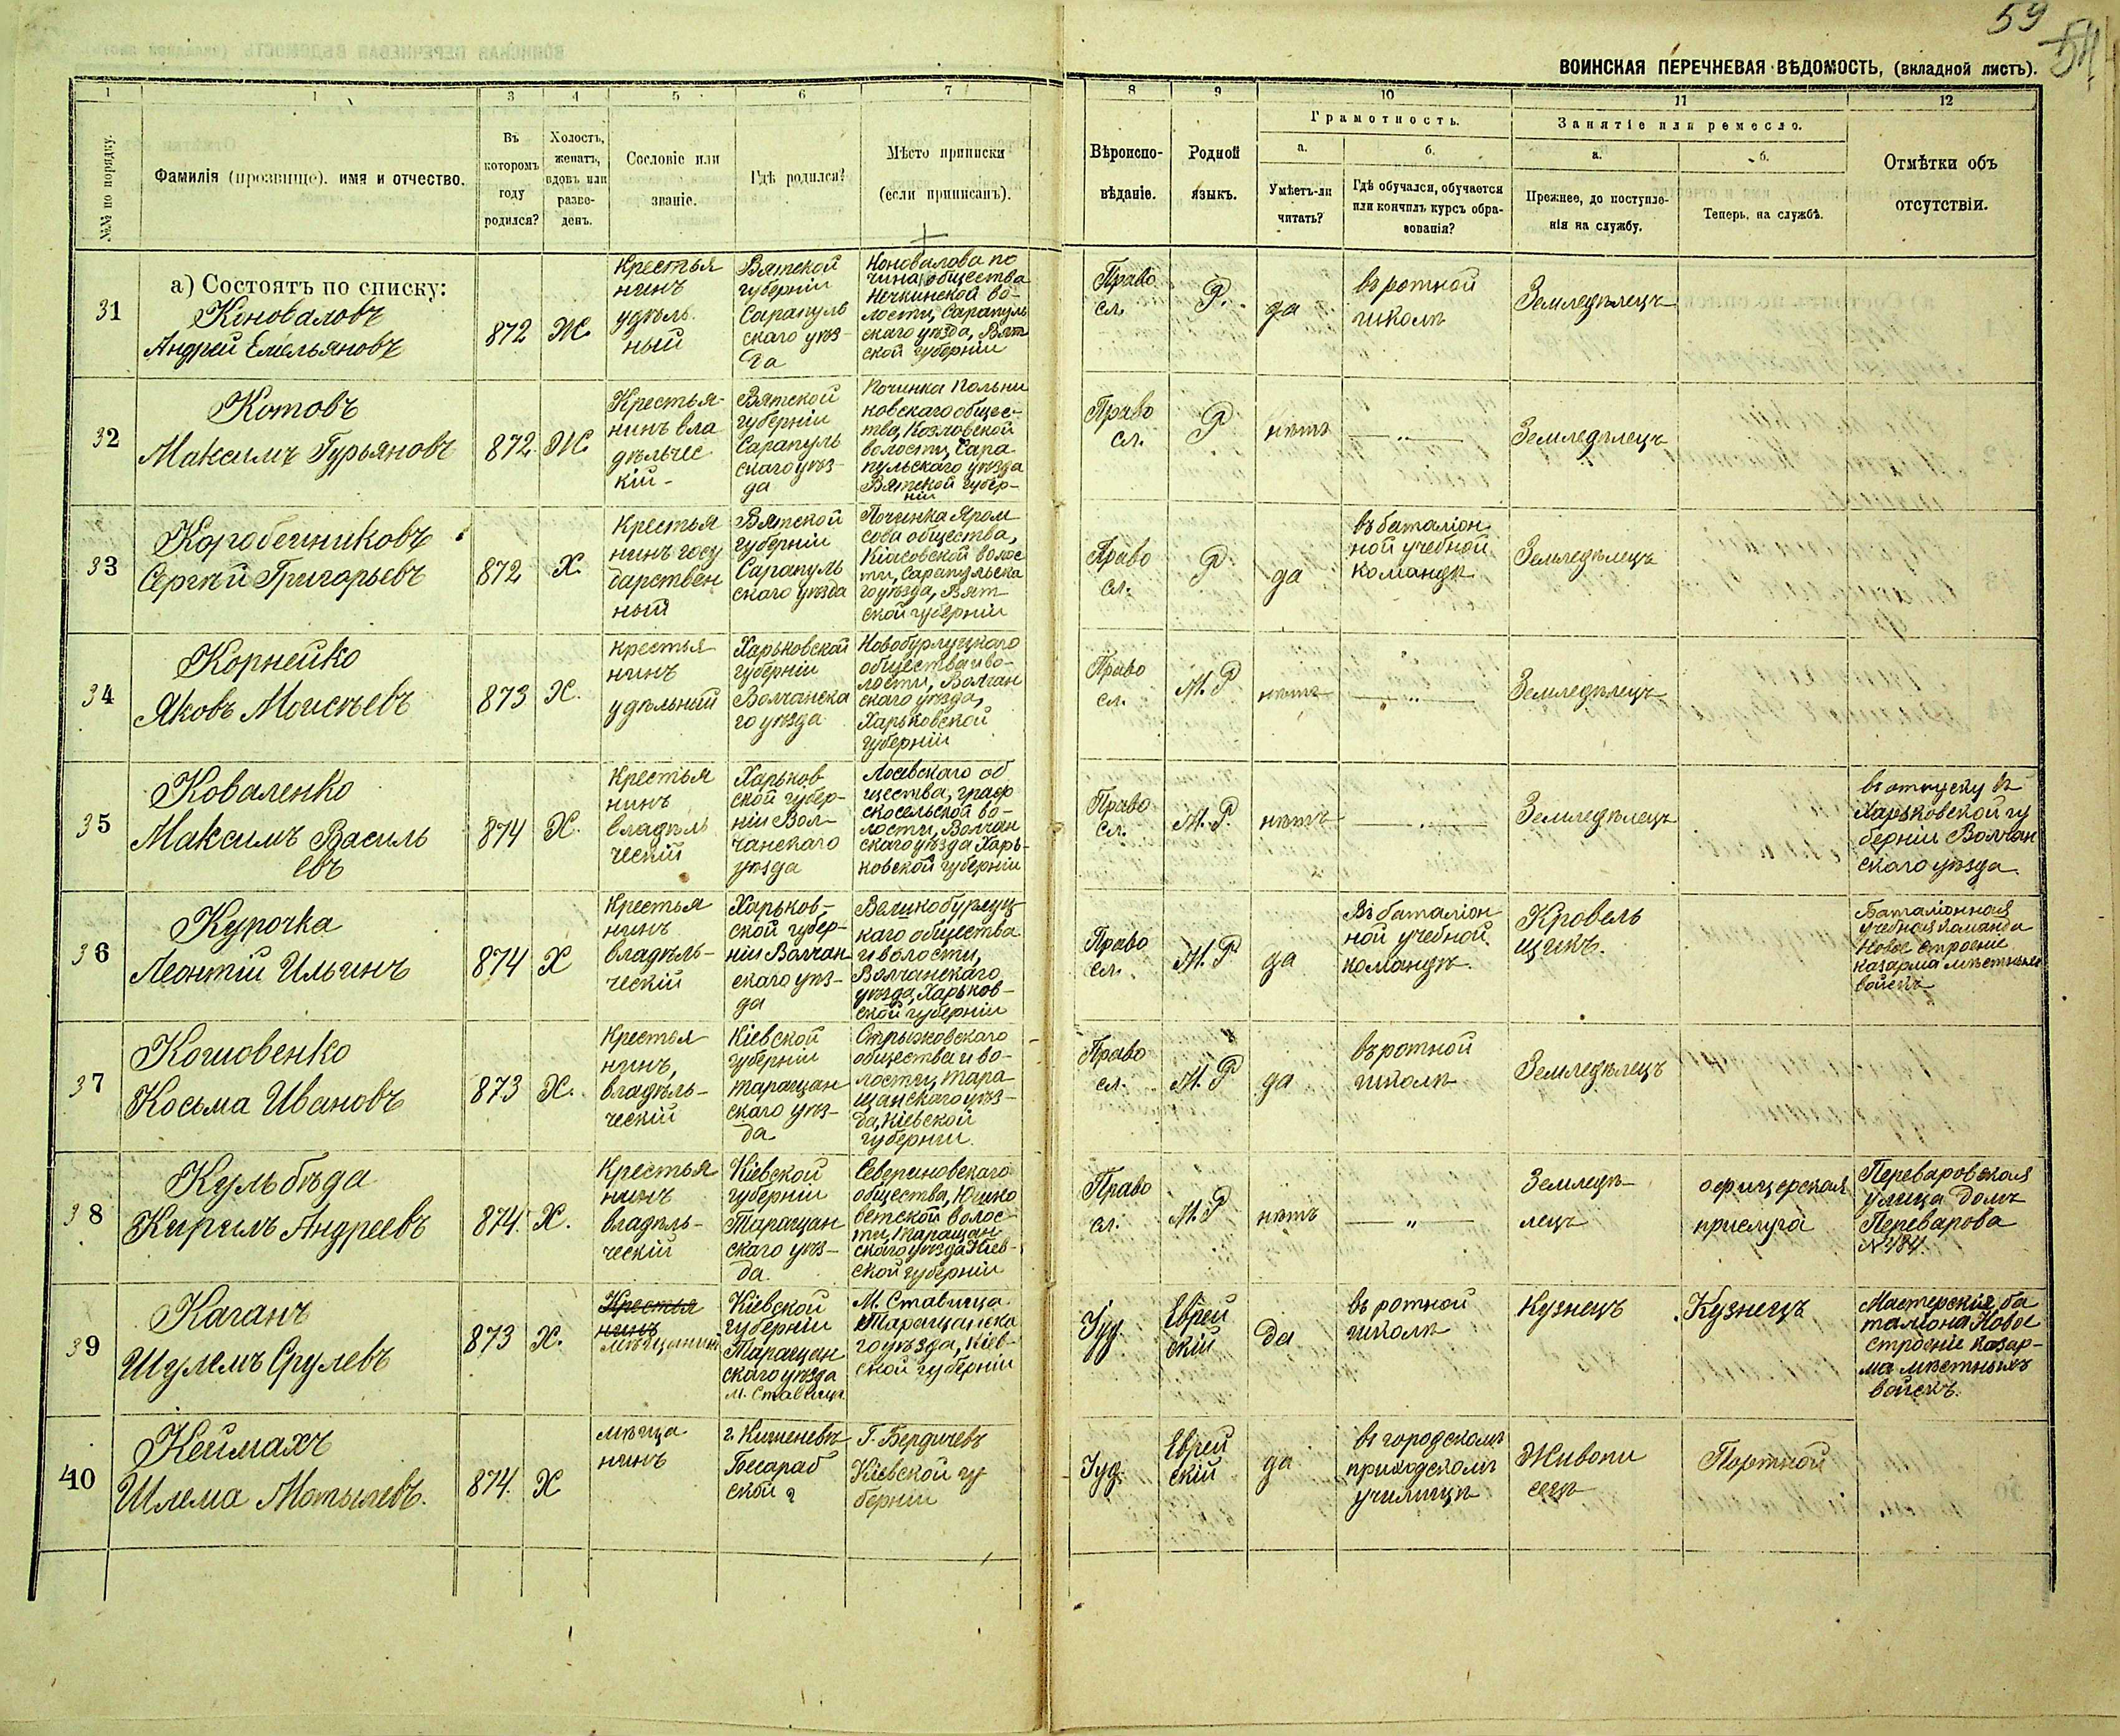 59
54
ВОИНСКАЯ ПЕРЕЧНЕВАЯ ВѢДОМОСТЬ, (вкладной листъ).
1
3
4
5
6
7
8
9
10
11
12
№№ по порядку.
Фамилія (прозвище), имя и отчество.
Въ
которомъ
году
родился?
Холостъ,
женатъ,
вдовъ или
разве-
денъ.
Сословіе или
званіе.
Гдѣ родился?
Мѣсто приписки
(если приписанъ).
Вѣроиспо-
вѣданіе.
Родной
языкъ.
Грамотность.
а.
Умѣетъ-ли
читать?
б.
Гдѣ обучался, обучается
или кончилъ курсъ обра-
зованія?
Занятіе или ремесло.
а.
Прежнее, до поступле-
нія на службу.
б.
Теперь, на службѣ.
Отмѣтки объ
отсутствіи.
а) Состоятъ по списку:
31
Коноваловъ
Андрей Емельяновъ
872
Ж.
Крестья
нинъ
удѣль
ный
Вятской
губерніи
Сарапуль
скаго уѣз-
да
Коновалова по
чина, общества
Нечкинской во-
лости, Сарапуль
скаго уѣзда, Вят
ской губерніи
Право
сл.
Р.
да
въ ротной
школѣ
Земледѣлецъ
32
Котовъ
Максимъ Гурьяновъ
872.
Ж.
Крестья-
нинъ вла
дѣльчес
кій-
Вятской
губерніи
Сарапуль
скаго уѣз-
да
Починка Польни
ковскаго общес-
тва, Козловской
волости, Сара
пульскаго уѣзда
Вятской губер-
ніи
Право
сл.
Р
нѣтъ
— „ —
Земледѣлецъ
33
Коробейниковъ
Сергѣй Григорьевъ
872
Х.
Крестья
нинъ госу
дарствен
ный
Вятской
губерніи
Сарапуль
скаго уѣзда
Починка Яром
сова общества,
Кіясовской волос
ти, Сарапульска
го уѣзда, Вят-
ской губерніи
Право
сл.
Р
да
въ баталіон
ной учебной
командѣ
Земледѣлецъ
34
Корнейко
Яковъ Моисѣевъ
873
Х.
крестья
нинъ
удѣльный
Харьковской
губерніи
Волчанска
го уѣзда
Новобурлуцкаго
общества и во-
лости, Волчан
скаго уѣзда,
Харьковской
губерніи
Право
сл.
М. Р
нѣтъ
— „ —
Земледѣлецъ
35
Коваленко
Максимъ Василь
евъ
874
Х.
Крестья
нинъ
владѣль
ческій
Харьков
ской губер-
ніи Вол-
чанскаго
уѣзда
Лосевскаго об
щества, граф
скосельской во-
лости, Волчан
скаго уѣзда Харь-
ковской губерніи
Право
сл.
М. Р.
нѣтъ
— „ —
Земледѣлецъ
въ отпуску въ
Харьковской гу
берніи Волчан
скаго уѣзда.
36
Курочка
Леонтій Ильинъ
874
Х
Крестья
нинъ
владѣль-
ческій
Харьков-
ской губер-
ніи Волчан
скаго уѣз-
да
Великобурлуц-
каго общества
и волости,
Волчанскаго
уѣзда, Харьков-
ской губерніи
Право
сл.
М. Р
да
Въ баталіон
ной учебной
командѣ.
Кровель
щикъ.
Баталіонная
учебная команда
Новое строеніе
казарма мѣстныхъ
войскъ
37
Кошовенко
Косьма Ивановъ
873
Х.
Крестья
нинъ,
владѣль-
ческій
Кіевской
губерніи
Таращан
скаго уѣз-
да
Стрыжовскаго
общества и во-
лости, Тара
щанскаго уѣз-
да, Кіевской
губерніи.
Право
сл.
М. Р
да
въ ротной
школѣ
Земледѣлецъ
38
Кульбѣда
Кирилъ Андреевъ
874.
Х.
Крестья
нинъ
владѣль-
ческій
Кіевской
губерніи
Таращан
скаго уѣз-
да.
Севериновскаго
общества, Юшко
ветской волос
ти, Таращан
скаго уѣзда Кіев-
ской губерніи
Право
сл.
М. Р
нѣтъ
— „ —
Земледѣ-
лецъ
офицерская
прислуга
Переваровская
улица домъ
Переварова
№ 484.
39
Каганъ
Шулемъ Срулевъ
873
Х.
Крестья
нинъ
мѣщанинъ
Кіевской
губерніи
Таращан
скаго уѣзда
м. Ставища
М. Ставища
Таращанска
го уѣзда, Кіев-
ской губерніи
Іуд.
Еврей
скій
да
въ ротной
школѣ
Кузнецъ
Кузнецъ
Мастерскія ба
таліона Новое
строеніе казар-
ма мѣстныхъ
войскъ.
40
Кеймахъ
Шлема Мотылевъ.
874.
Х
мѣща
нинъ
г. Кишеневъ
Бесараб
ской г
Г. Бердичевъ
Кіевской гу
берніи
Іуд.
Еврей
скій
да
въ городскомъ
приходскомъ
училищѣ
Живопи
сецъ
Портной